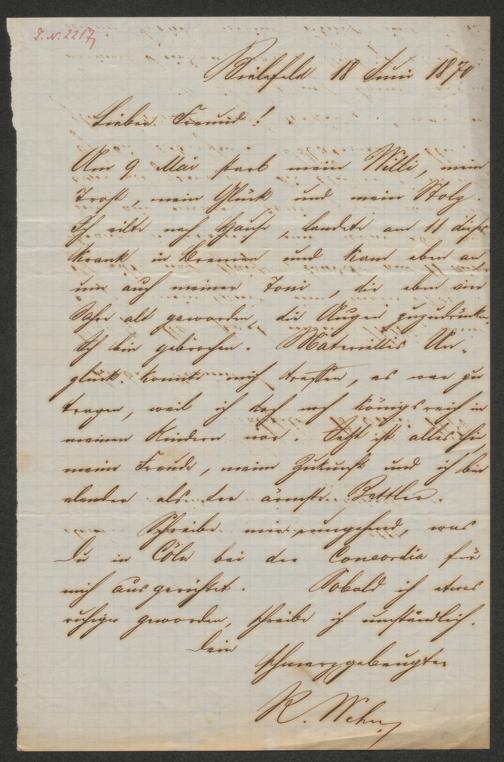 I.N. 2217
Bielefeld 18 Juni 1870
Lieber Freund!
Am 9 Mai starb mein Willi, mein
Trost, mein Glück und mein Stolz.
Ich eilte nach Hause, landete am 11 dieses
krank in Bremen und kam eben an,
um auch meiner Toni, die eben ein
Jahr alt geworden, die Augen zuzudrücken.
Ich bin gebrochen. Materielles Un-
glück konnte mich treffen, es war zu
tragen, weil ich doch noch königsreich in
meinen Kindern war. Jetzt ist alles hin
meine Freude, meine Zukunft und ich bin
elender als der ärmste Bettler.
Schreibe mir umgehend, was
Du in Cöln bei der Concordia für
mich ausgerichtet. Sobald ich etwas
ruhiger geworden, schreibe ich umständlich.
Dein
schmerzgebeugter
R. Wehn